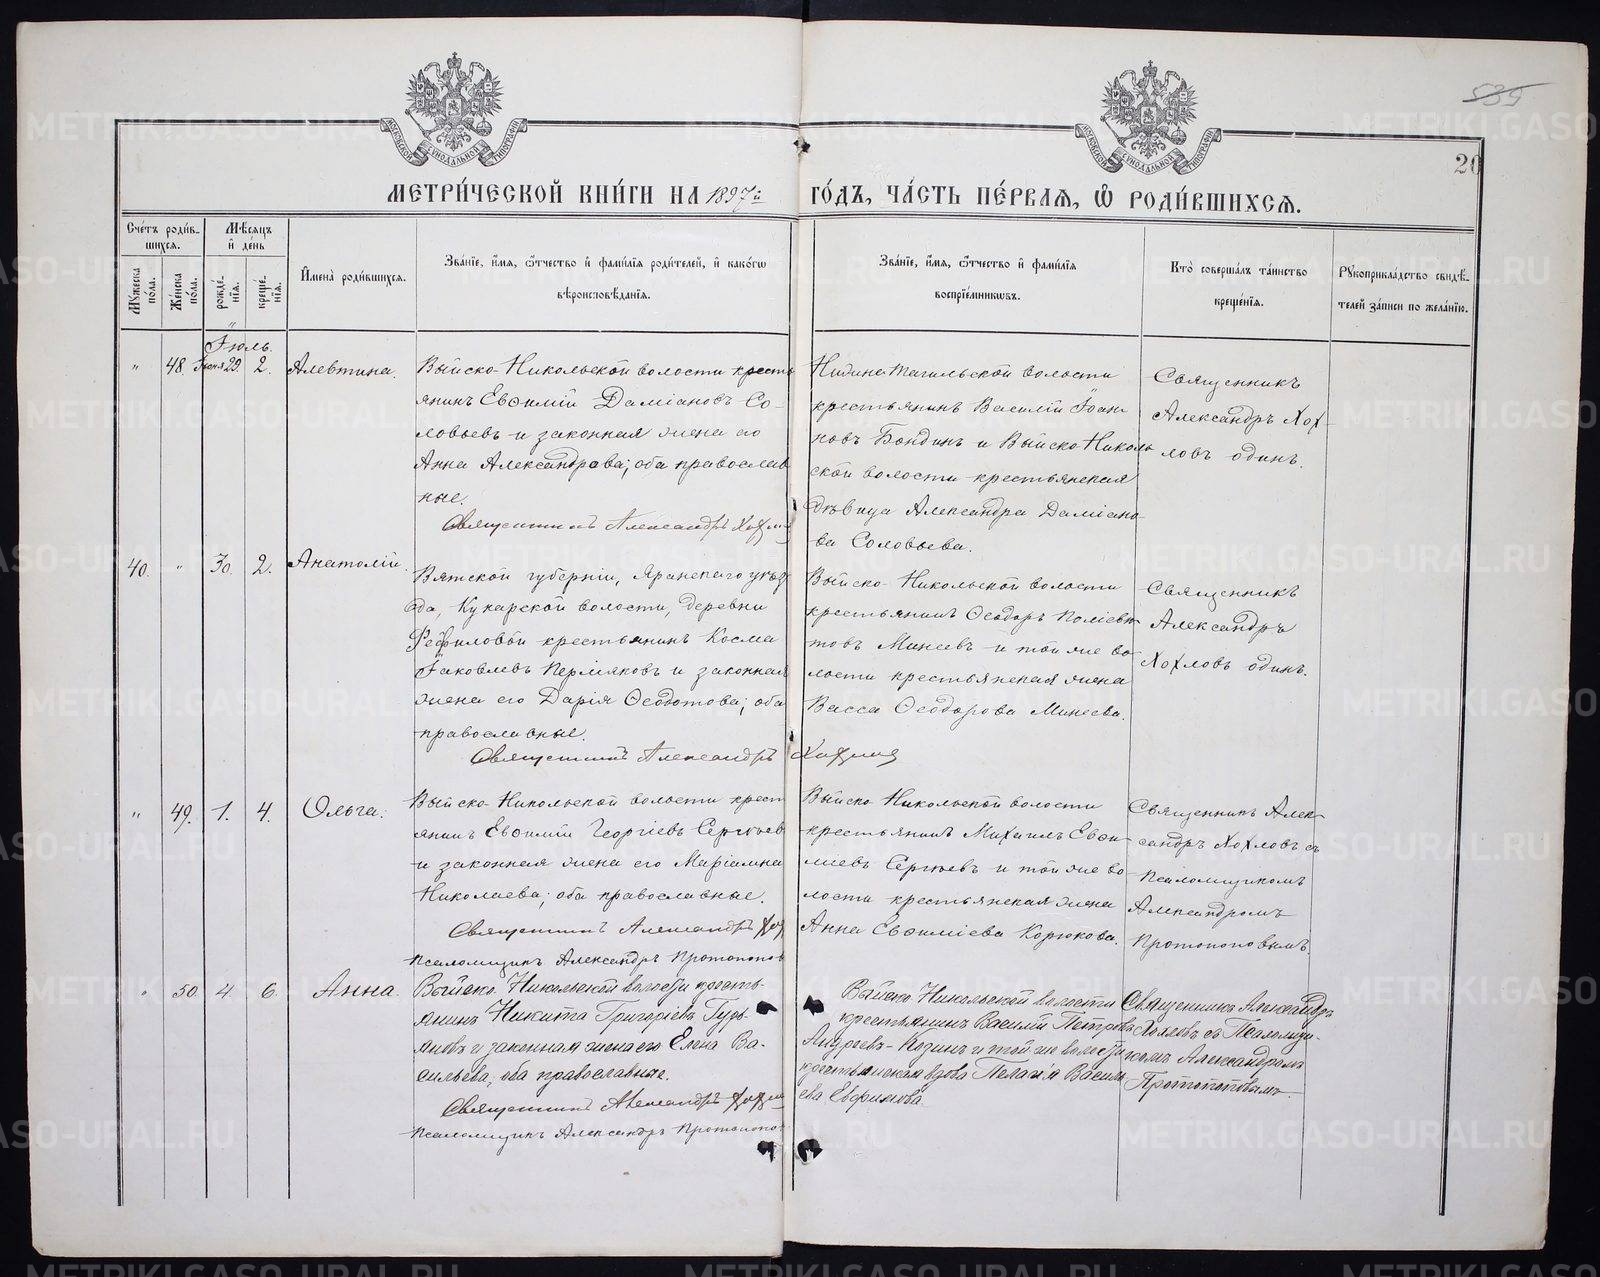 535
20
МОСКОВСКОЙ СѴНОДАЛЬНОЙ ТИПОГРАФІИ
МОСКОВСКОЙ СѴНОДАЛЬНОЙ ТИПОГРАФІИ
МЕТРИ́ЧЕСКОЙ КНИ́ГИ НА 1897й ГО́ДЪ, ЧА́СТЬ ПЕ́РВАѦ, Ѽ РОДИ́ВШИХСѦ.
Сче́тъ роди́в-
шихсѧ.
Мꙋжеска по́ла.
Же́нска по́ла.
Мѣ́сѧцъ
и҆ де́нь
рожде́-
нїѧ.
креще́-
нїѧ.
И҆мена̀ роди́вшихсѧ.
Зва́нїе, и҆́мѧ, ѻ҆́тчество и҆ фами́лїѧ роди́телей, и҆ како́гѡ
вѣроисповѣ́данїѧ.
Зва́нїе, и҆́мѧ, ѻ҆́тчество и҆ фами́лїѧ
воспрїе́мникѡвъ.
Кто̀ соверша́лъ та́инство
креще́нїѧ.
Рꙋкоприкла́дство свидѣ́-
телей за́писи по жела́нїю.
Іюль.
" 48. Іюня 29. 2. Алевтина.
Выйско-Никольской волости кресть
янинъ Евѳимій Даміановъ Со-
ловьевъ и законная жена его
Анна Александрова; оба православ
ные.
Священникъ Александръ Хохлов
Нижне Тагильской волости
крестьянинъ Василій Іоан-
новъ Бондинъ и Выйско-Николь
ской волости крестьянская
дѣвица Александра Даміано-
ва Соловьева.
Священникъ
Александръ Хох-
ловъ одинъ.
40. " 30. 2. Анатолій.
Вятской губерніи, Яранскаго уѣз
да, Кукарской волости, деревни
крестьянинъ Косма
Іаковлевъ Пермяковъ и законная
жена его Дарія Ѳеодотова; оба
православные.
Священникъ Александръ Хохлов
Выйско-Никольской волости
крестьянинъ Ѳеодоръ Поліевк
товъ Минеевъ и той же во-
лости крестьянская жена
Васса Ѳеодорова Минеева.
Священникъ
Александръ
Хохловъ одинъ.
" 49. 1. 4. Ольга.
Выйско-Никольской волости крест
янинъ Евѳимій Георгіевъ Сергѣевъ
и законная жена его Маріамна
Николаева; оба православные.
Священникъ Александръ Хох
Псаломщикъ Александръ Протопопов
Выйско-Никольской волости
крестьянинъ Михаилъ Евѳи-
міевъ Сергѣевъ и той же во-
лости крестьянская жена
Анна Евѳиміева Корюкова.
Священникъ Алек-
сандръ Хохловъ съ
Псаломщикомъ
Александромъ
Протопоповымъ.
" 50. 4. 6. Анна.
Выйско-Никольской волости кресть-
янинъ Никита Григоріевъ Гурь-
яновъ и законная жена его Елена Ва-
сильева, оба православные.
Священникъ Александръ Хохлов
Псаломщикъ Александръ Протопопо
Выйско Никольской волости
крестьянинъ Василій Петровъ
Андреевъ-Козинъ и той же волости
крестьянская вдова Пелагія Василь
ева Евфимова.
Священникъ Александръ
Хохловъ съ Псаломщи-
комъ Александромъ
Протопоповымъ.
METRIKI.GASO-URAL.RU